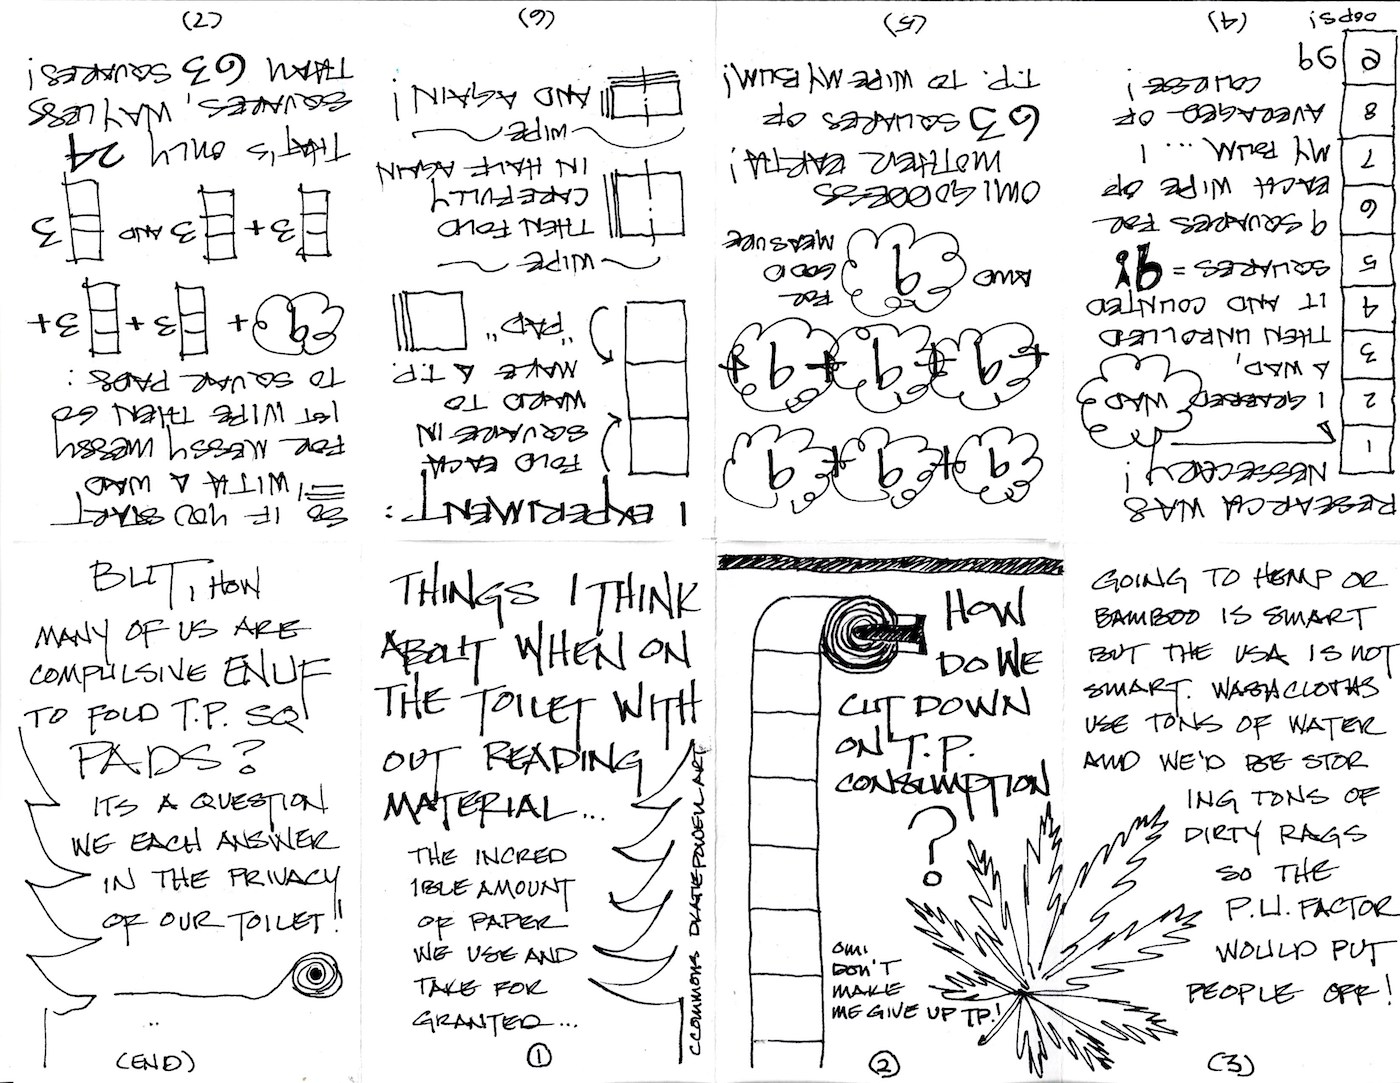 THINGS I THINK
ABOUT WHEN ON
THE TOILET WITH
OUT READING
MATERIAL...
THE INCRED
IBLE AMOUNT
OF PAPER
WE USE AND
TAKE FOR
GRANTED...
CCOMMONS DKATIEPOWELLART
①
HOW
DO WE
CUT DOWN
ON T.P.
CONSUMPTION
?
OMI
DON'T
MAKE
ME GIVE UP TP.!
②
GOING TO HEMP OR
BAMBOO IS SMART
BUT THE USA IS NOT
SMART. WASHCLOTHS
USE TONS OF WATER
AND WE'D BE STOR
ING TONS OF
DIRTY RAGS
SO THE
P.U. FACTOR
WOULD PUT
PEOPLE OFF!
(3)
RESEARCH WAS
NESSECARY!
I GRABBED WAD
A WAD,
THEN UNROLLED
IT AND COUNTED
SQUARES = 9!
9 SQUARES FOR
EACH WIPE OF
MY BUM ... I
AVERAGED OF
COURSE!
1
2
3
4
5
6
7
8
oops!
(4)
9 + 9 + 9
+ 9 + 9 + 9 +
AND 9 FOR
GOOD
MEASURE
OMIGODDESS
MOTHER EARTH!
63 SQUARES OF
T.P. TO WIPE MY BUM!
(5)
I EXPERIMENT:
FOLD EACH
SQUARE IN
WARD TO
MAKE A T.P.
"PAD"
WIPE
THEN FOLD
CAREFULLY
IN HALF AGAIN
WIPE
AND AGAIN!
(6)
SO IF YOU START
WITH A WAD
FOR MESSY MESSY
1ST WIPE THEN GO
TO SQUARE PADS:
9 + 3 + 3 +
3 + 3 AND 3
THAT'S ONLY 24
SQUARES, WAY LESS
THAN 63 SQUARES!
(7)
BUT, HOW
MANY OF US ARE
COMPULSIVE ENUF
TO FOLD T.P. SQ
PADS?
ITS A QUESTION
WE EACH ANSWER
IN THE PRIVACY
OF OUR TOILET!
(END)